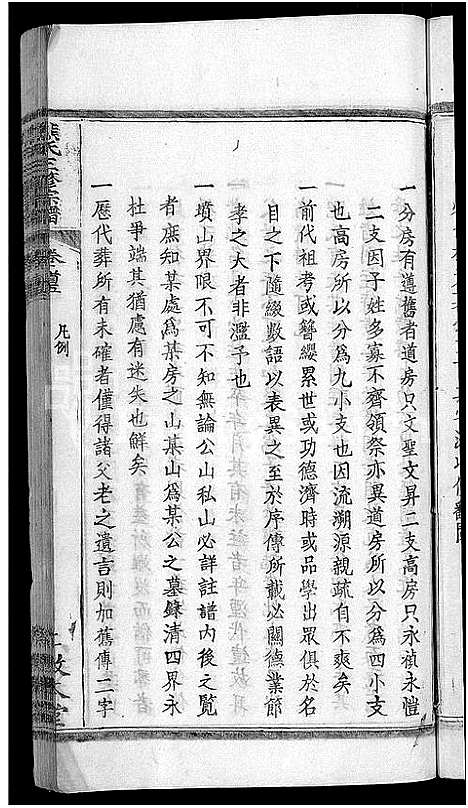 一分房有遵舊者道房只文聖文昇二支高房只永楨永愷
二支因子姓多寡不齊領祭亦異道房所以分為四小支
也高房所以分為九小支也因流溯源親疏自不爽矣
一前代祖考或簪纓累世或功德濟時或品學出眾俱於名
目之下隨綴數語以表異之至於序傳所載必關德業節
孝之大者非濫予也
一墳山界限不可不知無論公山私山必詳註譜內後之覧
者庶知某處為某房之山某山為某公之墓錄清四界永
杜爭端其猶慮有迷失也鮮矣
一歷代葬所有未確者僅得諸父老之遺言則加舊傳二字
熊氏三修宗譜
凡例